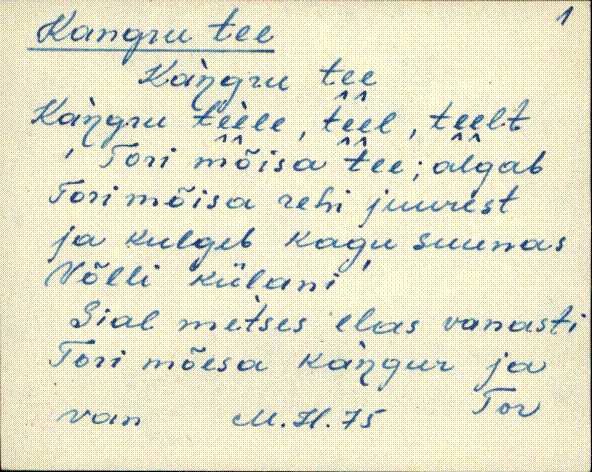 1
Kangru tee
Kàŋgru te͔e͔
Kàŋgru tèele, te̬e̬l, te̬e̬lt
'Tori mõisa tee; algab
Tori mõisa rehi juurest
ja kulgeb kagu suunas
Võlli külani'
Sial mètses elas vanasti
Tori mõesa kàŋgur ja
van M.H. 75 Tor